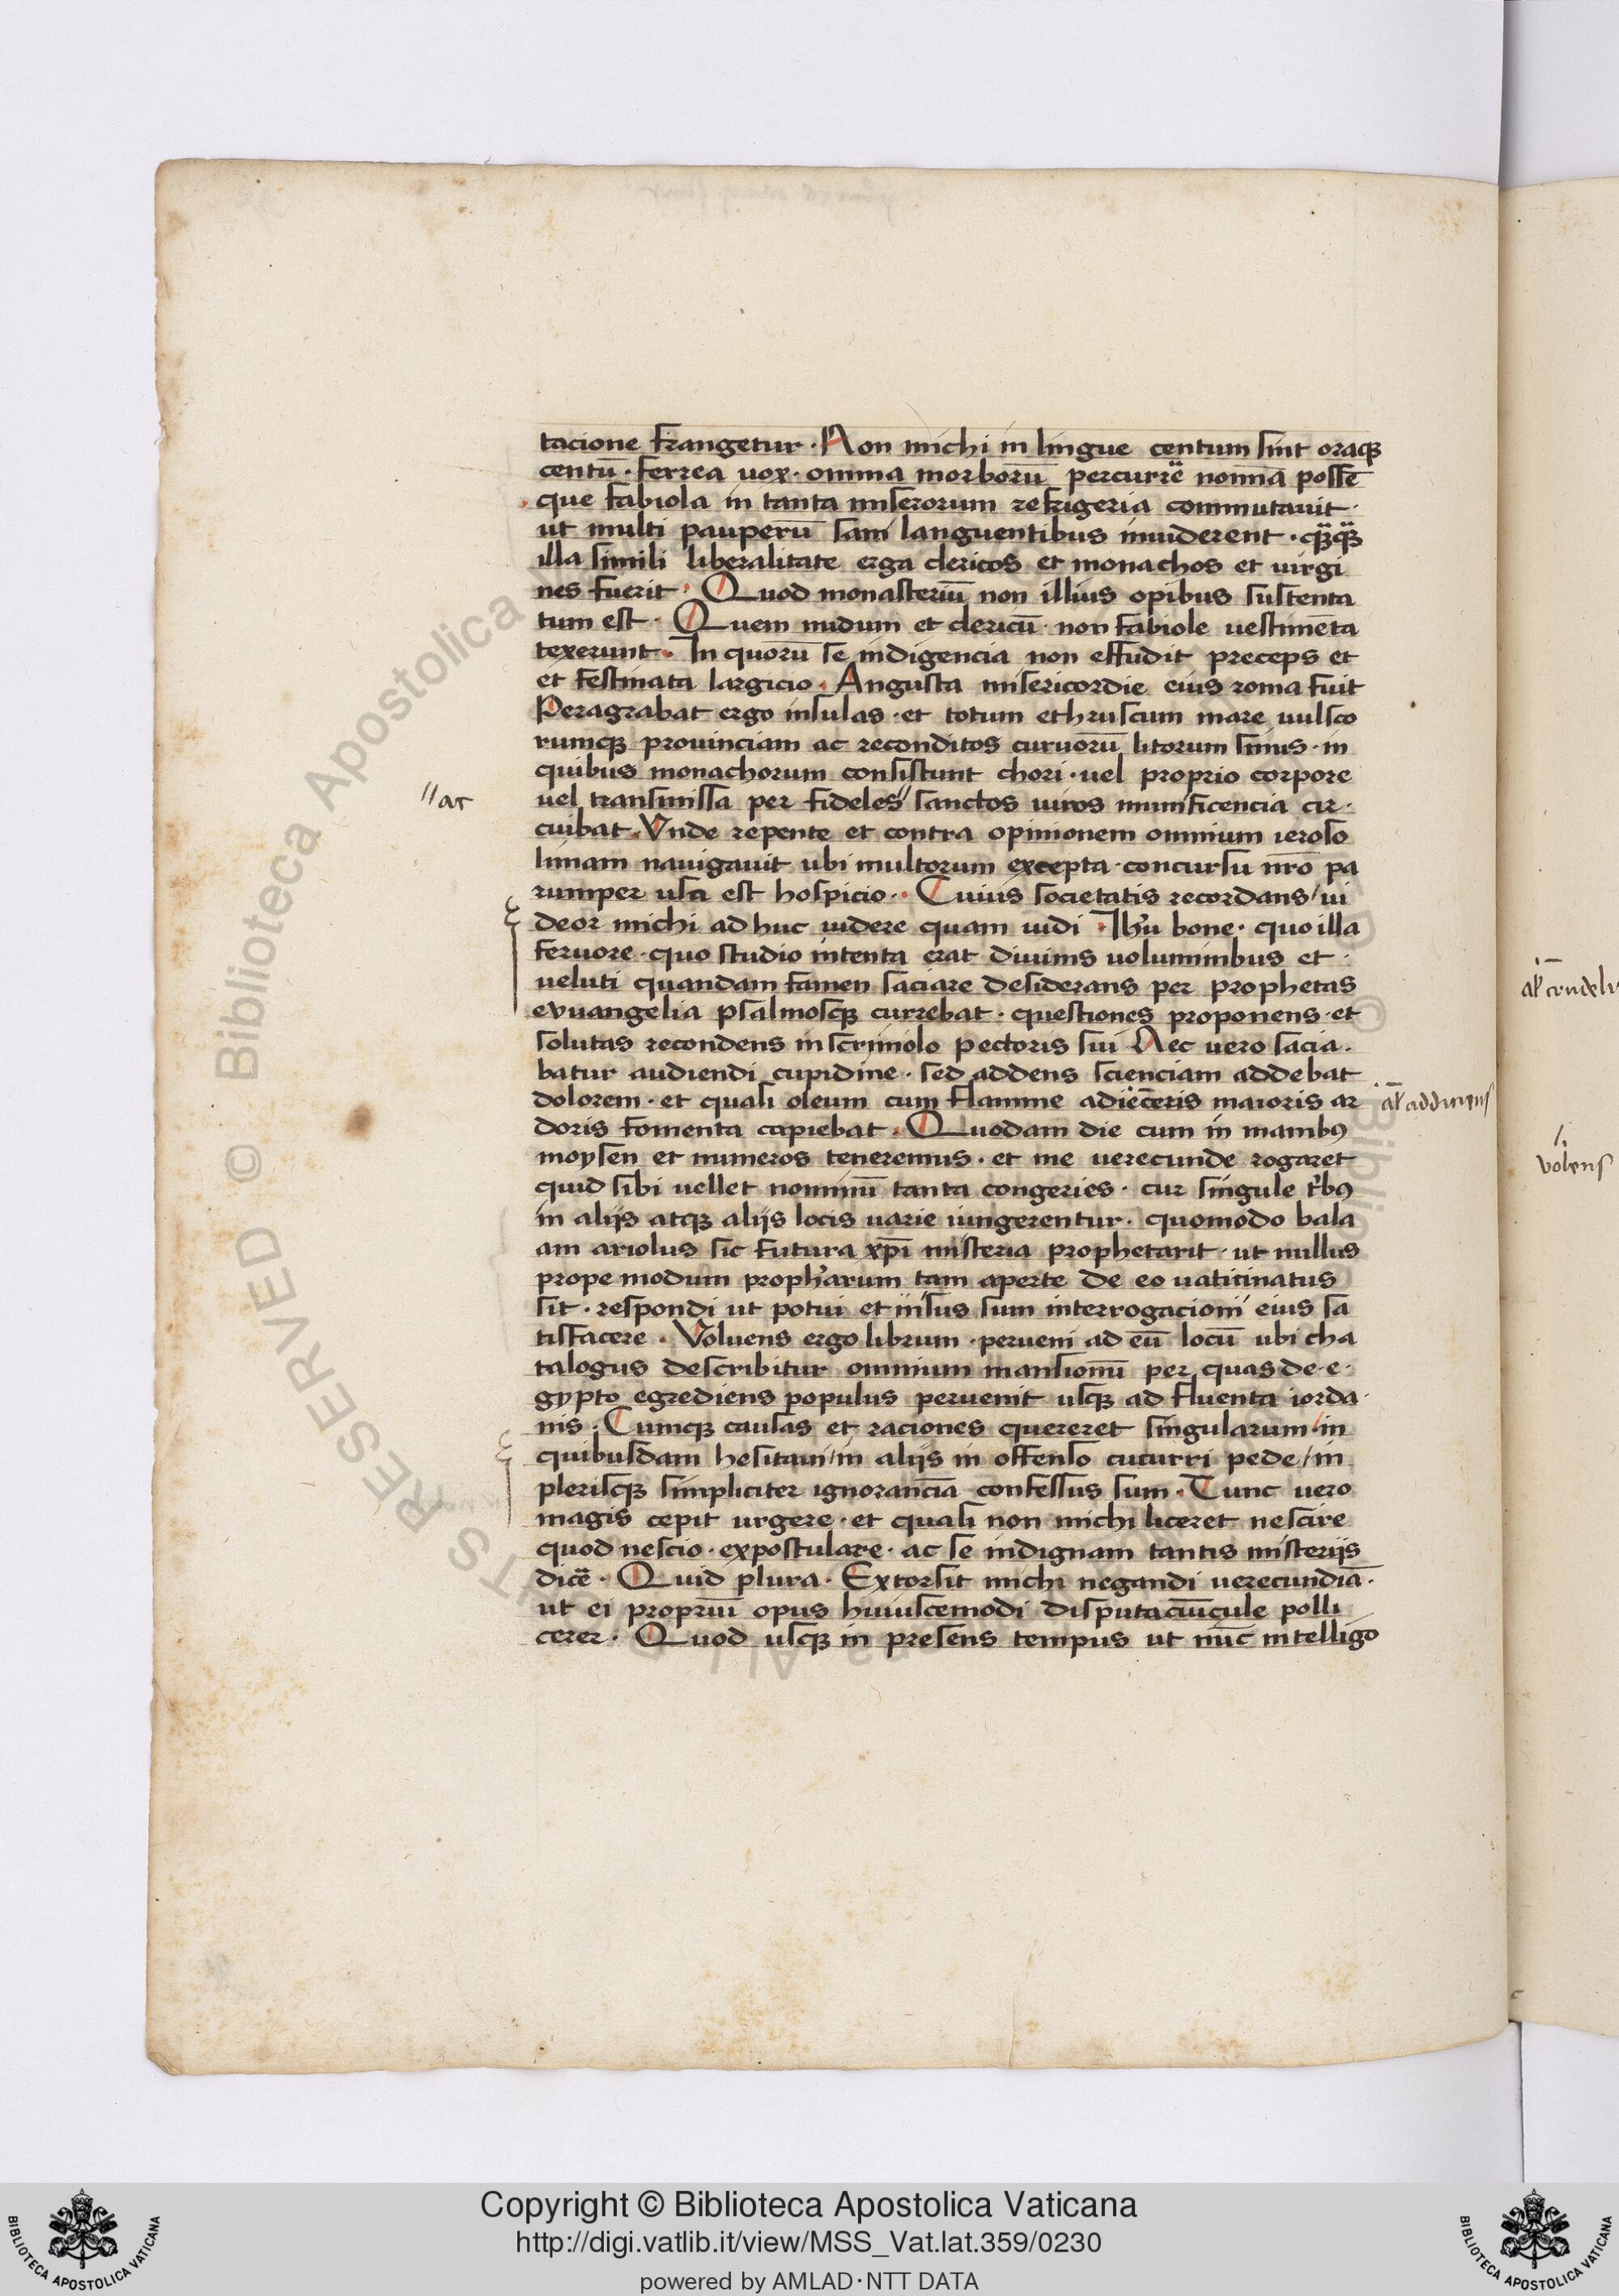 tacione frangetur · Non michi in lingue centum sint oraqꝫ
centū · ferrea uox · omnia morborū percurrē nomīa possē
que fabiola in tanta miserorum refrigeria commutauit ·
ut multi pauperū sani languentibus inuiderent · qꝫqꝫ
illa simili liberalitate erga clericos et monachos et uirgi
nes fuerit · Quod monasteriū non illius opibus sustenta
tum est · Quem nudum et clericū · non fabiole uestimēta
texerunt · In quorū se indigencia non effudit preceps et
et festinata largicio · Angusta misericordie eius roma fuit
Peragrabat ergo insulas · et totum ethruscum mare uulsco
rumqꝫ prouinciam ac reconditos curuorū litorum sinus · in
quibus monachorum consistunt chori · uel proprio corpore
//ac
uel transmissa per fideles // sanctos uiros munificencia cir ·
cuibat · Vnde repente et contra opinionem omnium ieroso
limam nauigauit ubi multorum excepta · concursu nr̄o pa
rumper usa est hospicio · Cuius societatis recordans / ui
deor michi ad huc uidere quam uidi · Ihu̅ bone · quo illa
feruore · quo studio intenta erat diuinis uoluminibus et ·
ueluti quandam famen saciare desiderans per prophetas
evuangelia psalmosqꝫ currebat · questiones proponens · et
solutas recondens in scriniolo pectoris sui · Nec uero sacia ·
batur audiendi cupidine · sed addens scienciam addebat
dolorem · et quasi oleum cum flamme adieceris maioris ar
al̄ adduciens
doris fomenta capiebat · Quodam die cum in manibꝰ
moysen et numeros teneremus · et me uerecunde rogaret
quid sibi uellet nominū tanta congeries · cur singule tr̄bꝰ
in alijs atqꝫ alijs locis uarie iungerentur · quomodo bala
am ariolus sic futura xp̄i misteria prophetarit · ut nullus
prope modum proph̄arum tam aperte de eo uaticinatus
sit · respondi ut potui et insus sum interrogacioni eius sa
tisfacere · Voluens ergo librum · perueni ad eū locū ubi cha
talogus describitur omnium mansionū per quas de · e ·
gypto egrediens populus peruenit usqꝫ ad fluenta iorda ·
nis · Cumqꝫ causas et raciones quereret singularum · in
quibusdam hesitaui / in alijs in offenso cucurri pede / in
plerisqꝫ simpliciter ignorancīa confessus sum · Tunc uero
magis cepit urgere · et quasi non michi liceret nescire
quod nescio · expostulare · ac se indignam tantis misterijs
dicē · Quid plura · Extorsit michi negandi uerecundiā ·
ut ei propriū opus huiuscemodi disputaciūcule polli
cerer · Quod usqꝫ in presens tempus ut nūc intelligo
volens
Copyright © Biblioteca Apostolica Vaticana
http://digi.vatlib.it/view/MSS_Vat.lat.359/0230
powered by AMLAD·NTT DATA
BIBLIOTECA APOSTOLICA VATICANA
BIBLIOTECA APOSTOLICA VATICANA